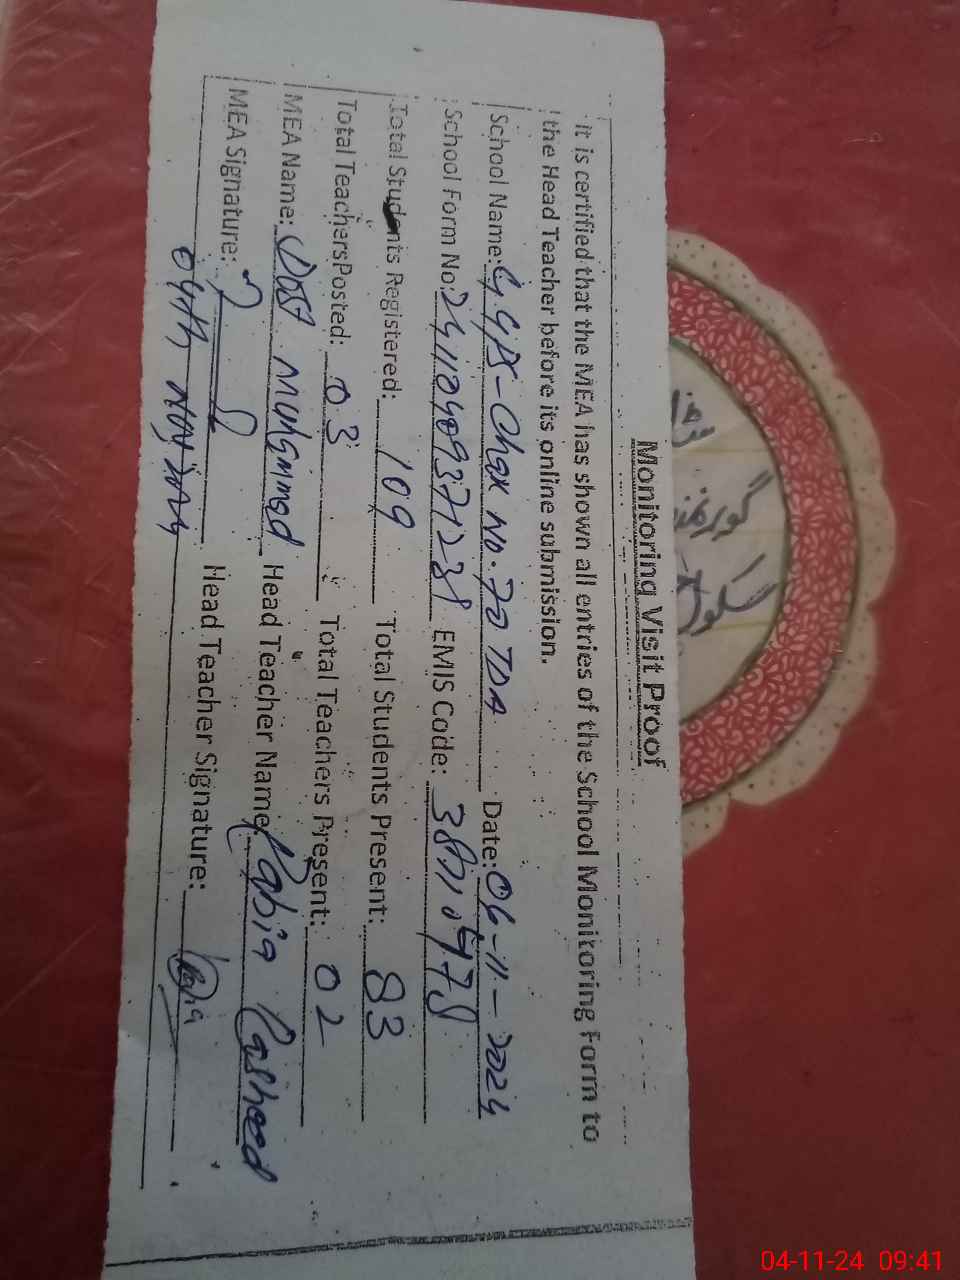 Monitoring Visit Proof
it is certified that the MEA has shown all entries of the School Monitoring Form to
the Head Teacher before its online submission.
School Name: GGPS-Chak No. 70 TDA Date: 06-11-2024
School Form No: EMIS Code:
Total Students Registered: 109 Total Students Present: 83
Total Teachers Posted: 03 Total Teachers Present: 02
MEA Name: Dost Muhammad Head Teacher Name: Rabia Rasheed
MEA Signature: Head Teacher Signature:
04th Nov 2024
گورنمنٹ
سکول
04-11-24 09:41